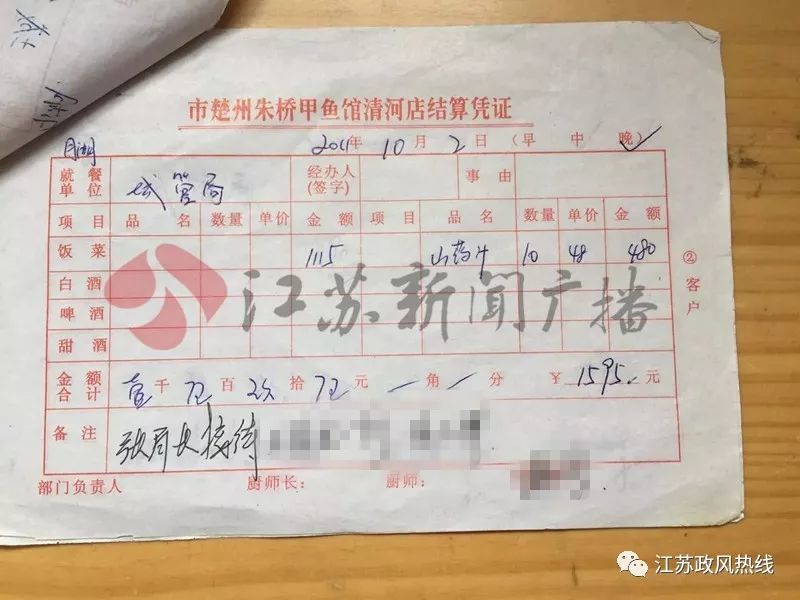 市楚州朱桥甲鱼馆清河店结算凭证
月湖 2011年 10月 2日 (早 中 晚) ✓
就餐单位 城管局 经办人(签字) 事由
项目 品名 数量 单价 金额 项目 品名 数量 单价 金额
饭菜 1115 山药汁 10 48 480
白酒
啤酒
甜酒
金额合计 壹千伍百 拾伍元 一角一分 ¥1595.元
备注 张局长接待
部门负责人 厨师长: 厨师:
②客户
江苏新闻广播
江苏政风热线